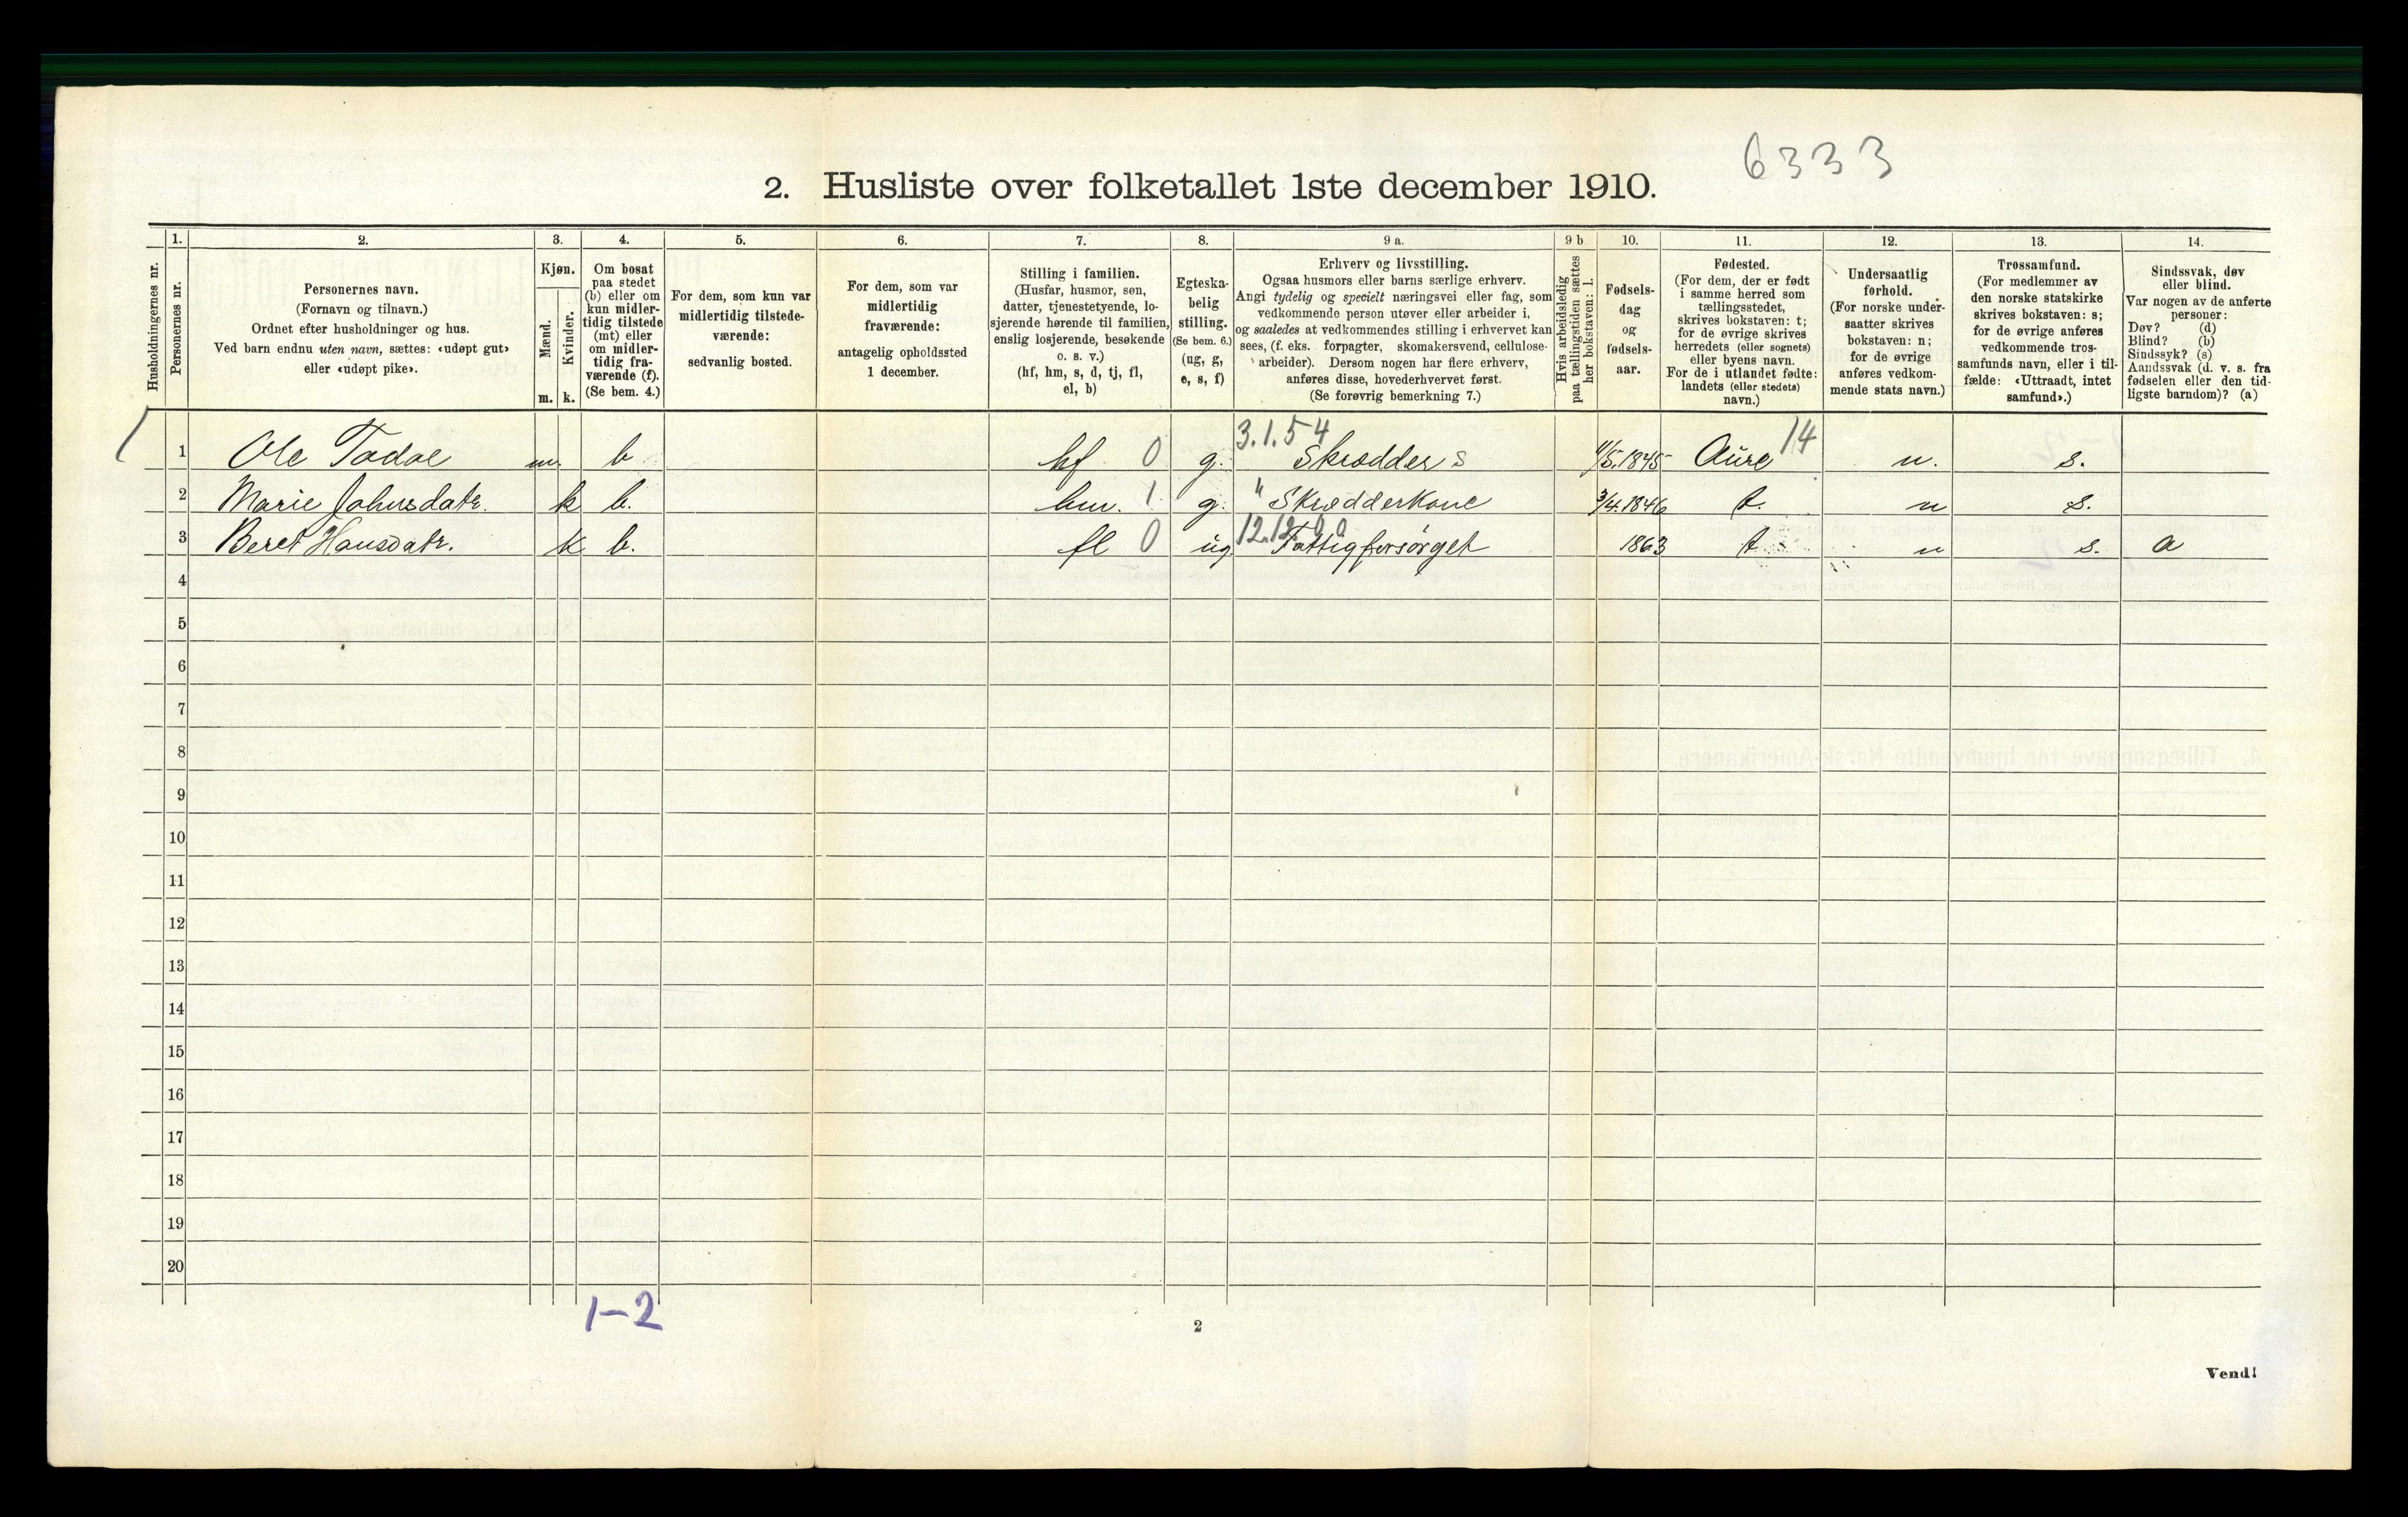 6333
2. Husliste over folketallet 1ste december 1910.
Husholdningernes nr.
1.
Personernes nr.
2.
Personernes navn.
(Fornavn og tilnavn.)
Ordnet efter husholdninger og hus.
Ved barn endnu uten navn, sættes: «udøpt gut»
eller «udøpt pike».
3.
Kjøn.
Mænd.
Kvinder.
m. k.
4.
Om bosat
paa stedet
(b) eller om
kun midler-
tidig tilstede
(mt) eller
om midler-
tidig fra-
værende (f).
(Se bem. 4.)
5.
For dem, som kun var
midlertidig tilstede-
værende:
sedvanlig bosted.
6.
For dem, som var
midlertidig
fraværende:
antagelig opholdssted
1 december.
7.
Stilling i familien.
(Husfar, husmor, søn,
datter, tjenestetyende, lo-
sjerende hørende til familien,
enslig losjerende, besøkende
o. s. v.)
(hf, hm, s, d, tj, fl,
el, b)
8.
Egteska-
belig
stilling.
(Se bem. 6.)
(ug, g,
e, s, f)
9 a.
Erhverv og livsstilling.
Ogsaa husmors eller barns særlige erhverv.
Angi tydelig og specielt næringsvei eller fag, som
vedkommende person utøver eller arbeider i,
og saaledes at vedkommendes stilling i erhvervet kan
sees, (f. eks. forpagter, skomakersvend, cellulose-
arbeider). Dersom nogen har flere erhverv,
anføres disse, hovederhvervet først.
(Se forøvrig bemerkning 7.)
9 b
Hvis arbeidsledig
paa tællingstiden sættes
her bokstaven: l.
10.
Fødsels-
dag
og
fødsels-
aar.
11.
Fødested.
(For dem, der er født
i samme herred som
tællingsstedet,
skrives bokstaven: t;
for de øvrige skrives
herredets (eller sognets)
eller byens navn.
For de i utlandet fødte:
landets (eller stedets)
navn.)
12.
Undersaatlig
forhold.
(For norske under-
saatter skrives
bokstaven: n;
for de øvrige
anføres vedkom-
mende stats navn.)
13.
Trossamfund.
(For medlemmer av
den norske statskirke
skrives bokstaven: s;
for de øvrige anføres
vedkommende tros-
samfunds navn, eller i til-
fælde: «Uttraadt, intet
samfund».)
14.
Sindssvak, døv
eller blind.
Var nogen av de anførte
personer:
Døv? (d)
Blind? (b)
Sindssyk? (s)
Aandssvak (d. v. s. fra
fødselen eller den tid-
ligste barndom)? (a)
3.1.54 14
1 Ole m. b hf 0 g. Skrædder s 11/5.1845 Aure n. s.
2 Marie Johnsdatr. k b. hm. 1 g. " Skrædderkone 3/4.1846 t. n s.
12.12.0.0
3 Beret Hansdatr. k b. fl 0 ug Fattigforsørget 1863 t n s. a
4
5
6
7
8
9
10
11
12
13
14
15
16
17
18
19
20
1-2
2
Vend!